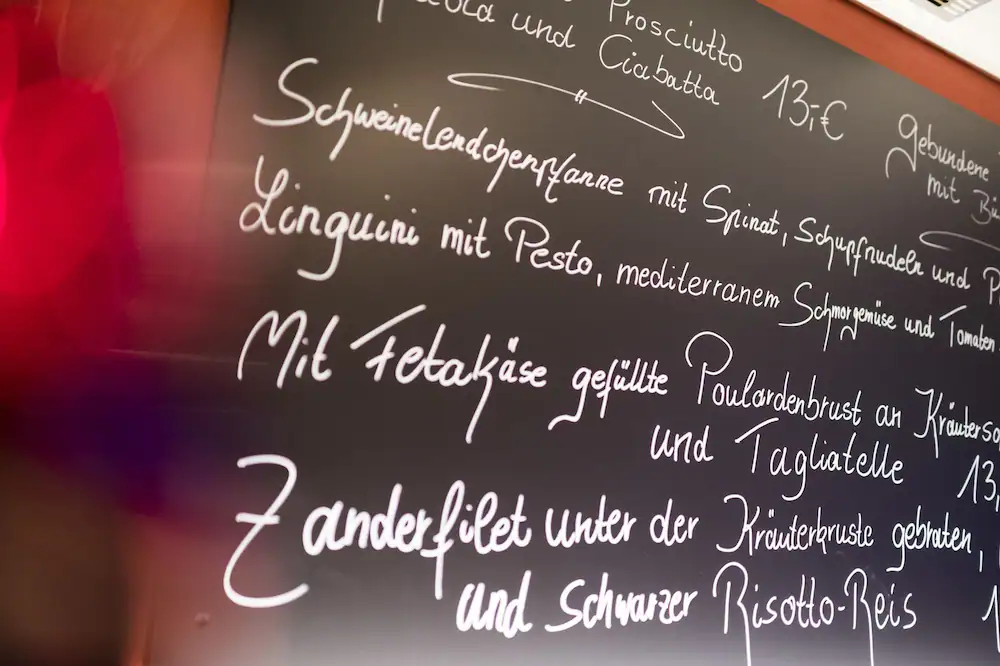 Prosciutto
und Ciabatta 13,-€
gebundene
mit
Schweinelendchenpfanne mit Spinat, Schupfnudeln und
Linguini mit Pesto, mediterranem Schmorgemüse und Tomaten
Mit Fetakäse gefüllte Poulardenbrust an
und Tagliatelle 13,
Zanderfilet unter der Kräuterkruste gebraten,
und Schwarzer Risotto-Reis